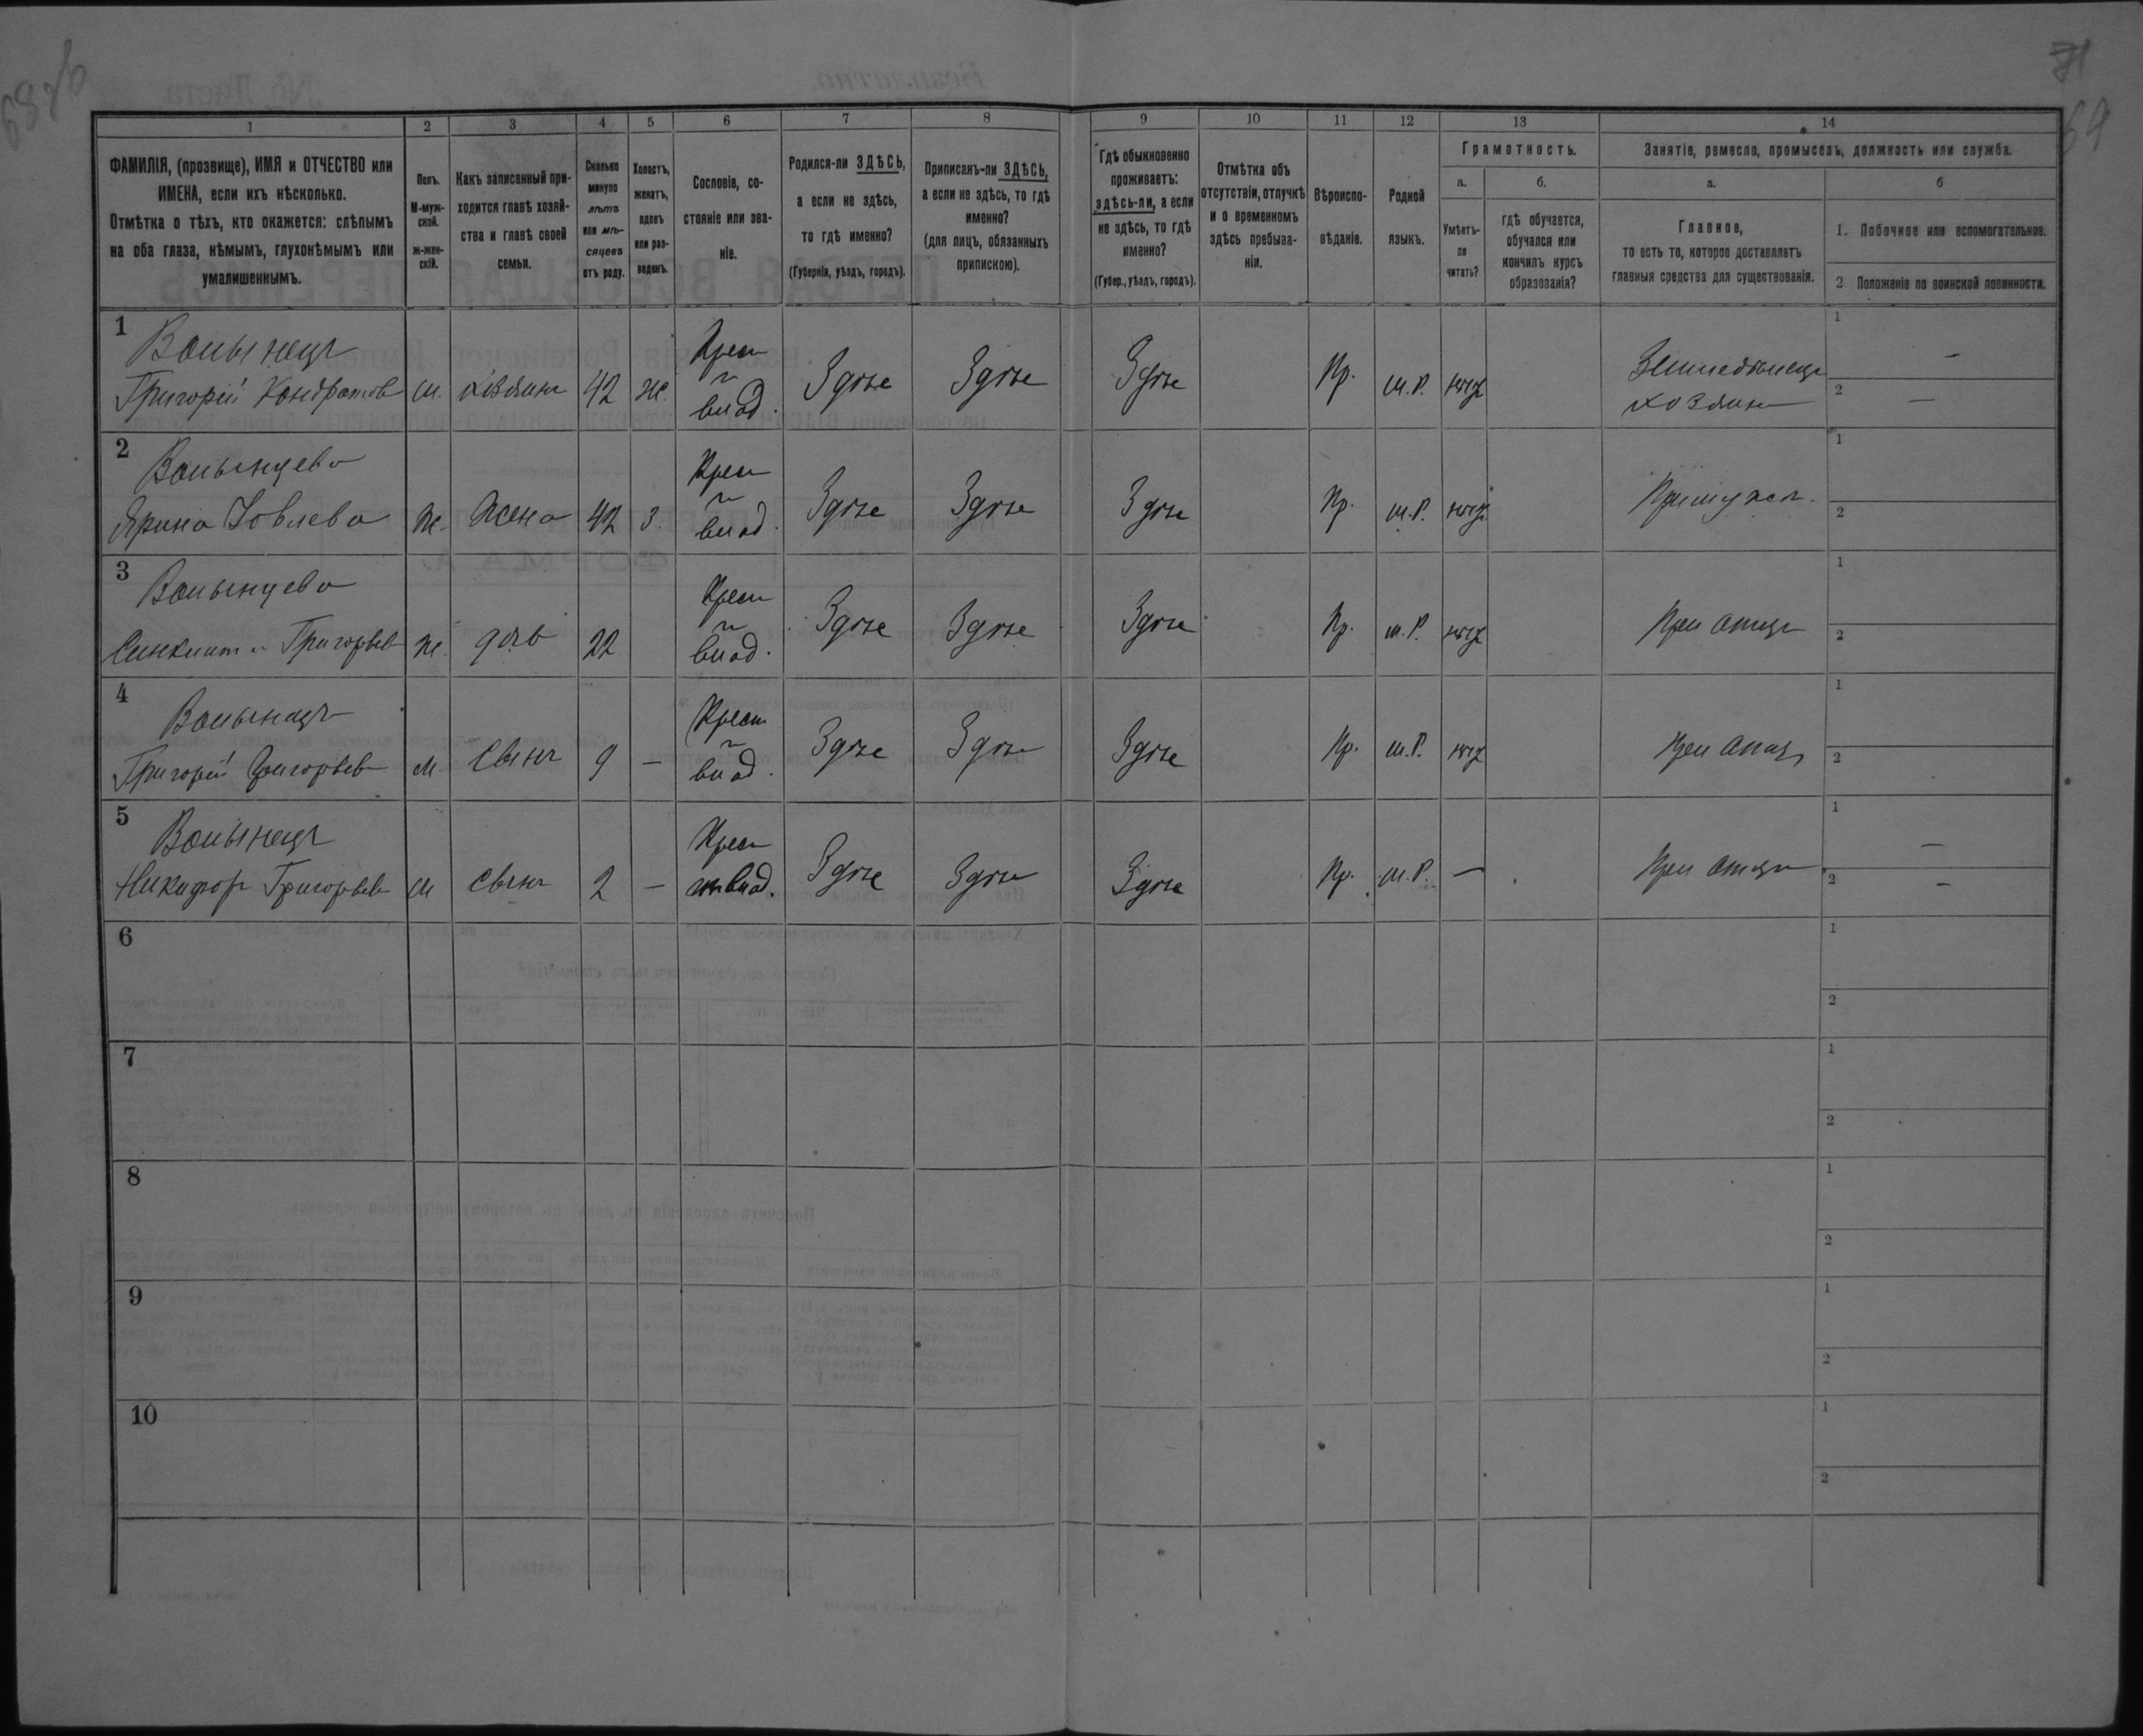 71
69
1 2 3 4 5 6 7 8 9 10 11 12 13 14
ФАМИЛІЯ, (прозвище), ИМЯ и ОТЧЕСТВО или
ИМЕНА, если ихъ нѣсколько.
Отмѣтка о тѣхъ, кто окажется: слѣпымъ
на оба глаза, нѣмымъ, глухонѣмымъ или
умалишеннымъ.
Полъ.
М-муж-
ской.
ж-жен-
скій.
Какъ записанный при-
ходится главѣ хозяй-
ства и главѣ своей
семьи.
Сколько
минуло
лѣтъ
или мѣ-
сяцевъ
отъ роду.
Холостъ,
женатъ,
вдовъ
или раз-
веденъ.
Сословіе, со-
стояніе или зва-
ніе.
Родился-ли ЗДѢСЬ,
а если не здѣсь,
то гдѣ именно?
(Губернія, уѣздъ, городъ).
Приписанъ-ли ЗДѢСЬ,
а если не здѣсь, то гдѣ
именно?
(для лицъ, обязанныхъ
припискою).
Гдѣ обыкновенно
проживаетъ:
здѣсь-ли, а если
не здѣсь, то гдѣ
именно?
(Губер., уѣздъ, городъ).
Отмѣтка объ
отсутствіи, отлучкѣ
и о временномъ
здѣсь пребыва-
ніи.
Вѣроиспо-
вѣданіе.
Родной
языкъ.
Грамотность.
а.
Умѣетъ-
ли
читать?
б.
гдѣ обучается,
обучался или
кончилъ курсъ
образованія?
Занятіе, ремесло, промыселъ, должность или служба.
а.
Главное,
то есть то, которое доставляетъ
главныя средства для существованія.
б
1. Побочное или вспомогательное.
2 Положеніе по воинской повинности.
1 Волынецъ
Григорій Кондратов м. хозяинъ 42 ж. Крест влад. Здѣсь Здѣсь Здѣсь Пр. м.Р. нѣт Земледѣлецъ хозяин 1 – 2 –
2 Волынцева
Ярина Іовлева ж. жена 42 з. Крест влад. Здѣсь Здѣсь Здѣсь Пр. м.Р. нѣт При мужѣ 1 2
3 Волынцева
Григорьев ж. дочь 22 Крест влад. Здѣсь Здѣсь Здѣсь Пр. м.Р. нѣт При отцѣ 1 2
4 Волынецъ
Григорій Григорьев м. сынъ 9 – Крест влад. Здѣсь Здѣсь Здѣсь Пр. м.Р. нѣт При отцѣ 1 2
5 Волынецъ
Никифор Григорьев м сынъ 2 – Крест влад. Здѣсь Здѣсь Здѣсь Пр. м.Р. – При отцѣ 1 – 2 –
6 1 2
7 1 2
8 1 2
9 1 2
10 1 2